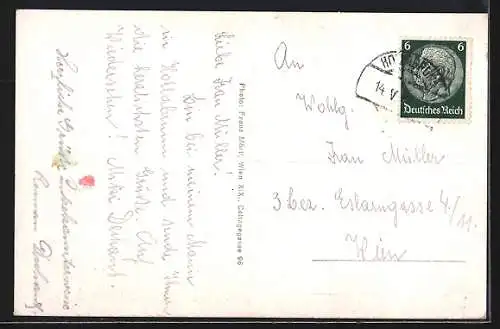 Liebe Frau Müller!
Bin bei meinem Mann
in Hollabrunn und sende Ihnen
die herzlichsten Grüße. Auf
Wiedersehen! Mitzi
Herzliche Grüße
Roman
Photo: Franz Mörtl, Wien XIX., Cottagegasse 66
An
Wohlg.
Frau Müller
3 bez. Erlarngasse 4/11.
Wien
6 6
Deutsches Reich
14.